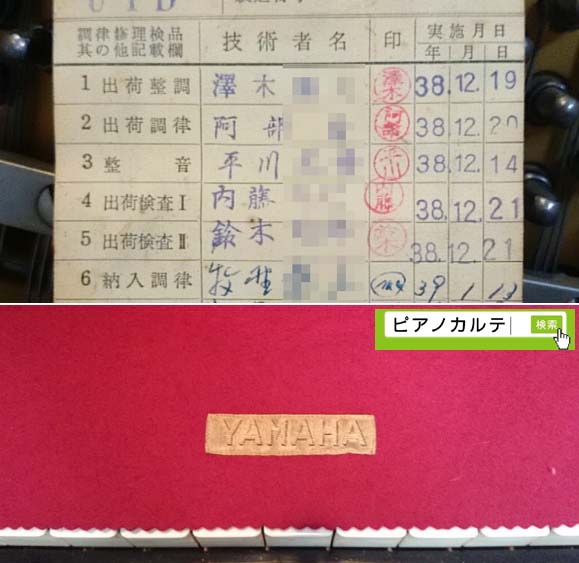 U1D
調律修理検品 技術者名 印 実施月日
其の他記載欄 年 月 日
1 出荷整調 澤木 澤木 38.12.19
2 出荷調律 阿部 阿部 38.12.20
3 整音 平川 平川 38.12.14
4 出荷検査Ⅰ 内藤 内藤 38.12.21
5 出荷検査Ⅱ 鈴木 鈴木 38.12.21
6 納入調律 39 1 13
ピアノカルテ 検索
YAMAHA